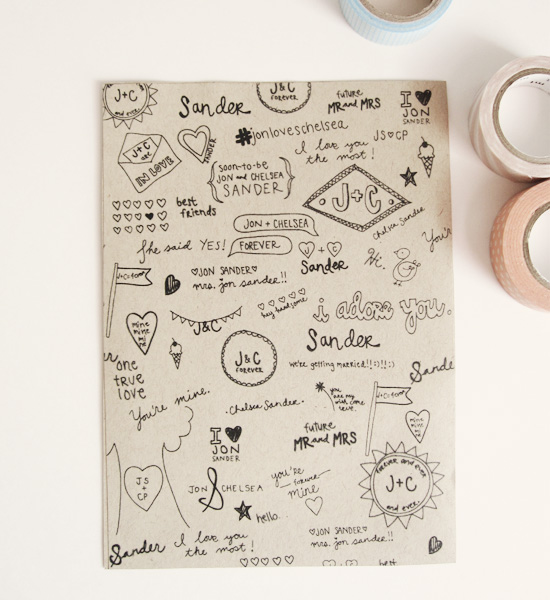 J+C
and ever
Sander
J&C
forever
future
MR and MRS
I
JON
SANDER
#jonloveschelsea
JS CP
J+C
are
IN LOVE
SANDER
I love you
the most!
soon-to-be
JON and CHELSEA
SANDER
J+C
Chelsea Sander
best
friends
JON + CHELSEA
FOREVER
She said YES!
Sander
Hi.
You're
J+C=
JON SANDER
mrs. jon sander!!
hey handsome
i adore you.
mine
mine
mi
ne
J&C
J&C
forever
Sander
we're getting married!!:)!!:)
Sande
one
true
love
You're mine.
.Chelsea Sander.
you
are my
wish come
true.
J+C=
I
JON
SANDER
future
MR and MRS
mine
forever and ever
J+C
and ever
JS
+
CP
JON & CHELSEA
you're
forever
mine
hello.
Sander
I love you
the most!
JON SANDER
mrs. jon sander!!
best